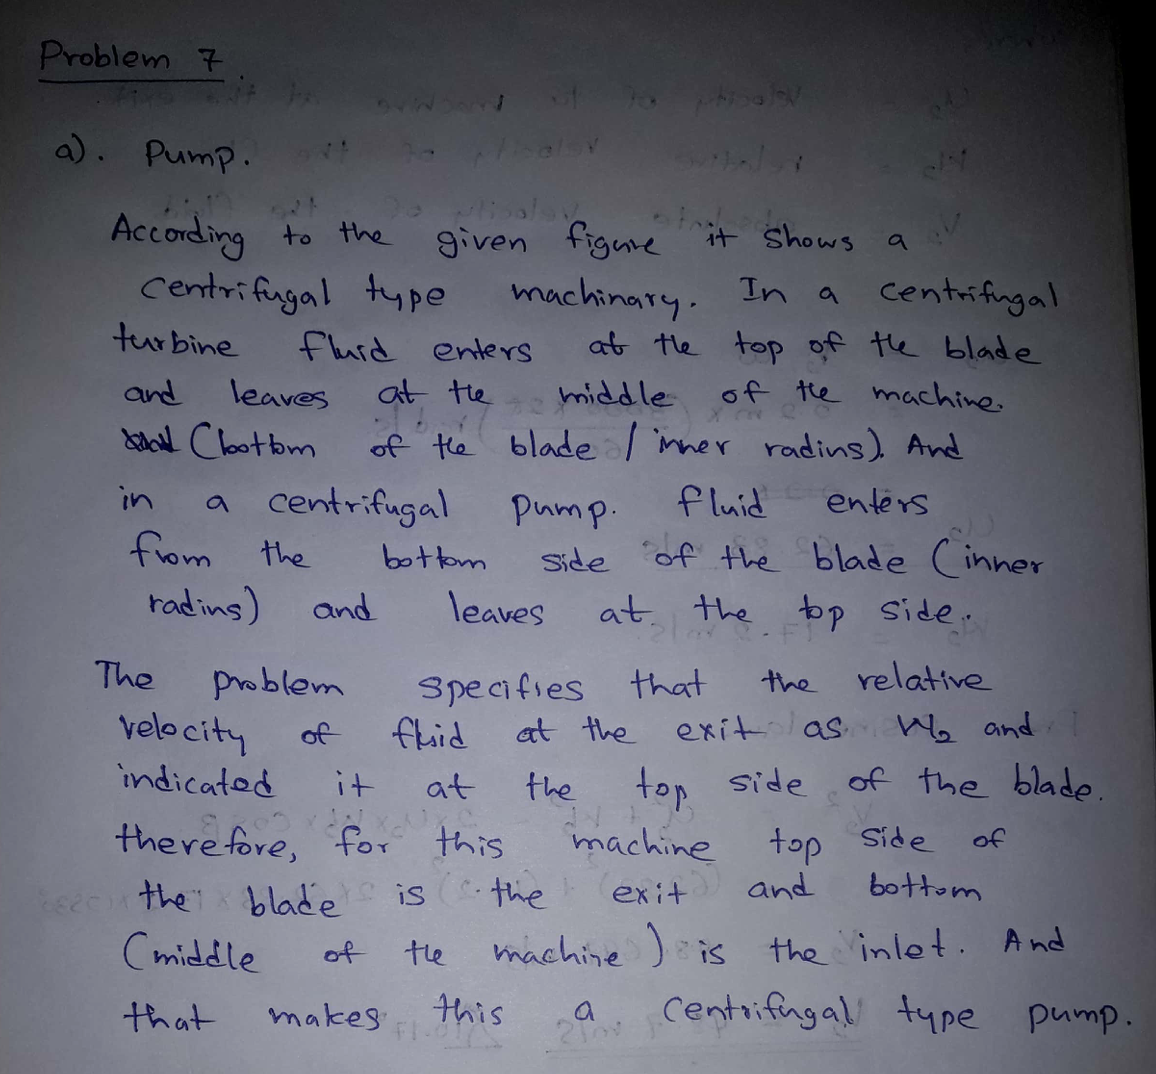 Problem 7.
a). Pump.
According to the given figure it shows a
centrifugal type machinary. In a centrifugal
turbine fluid enters at the top of the blade
and leaves at the middle of the machine.
(bottom of the blade / inner radius). And
in a centrifugal pump. fluid enters
from the bottom side of the blade (inner
radius) and leaves at the top side.
The problem specifies that the relative
velocity of fluid at the exit as W₂ and
indicated it at the top side of the blade.
therefore, for this machine top side of
the blade is the exit and bottom
(middle of the machine) is the inlet. And
that makes this a centrifugal type pump.